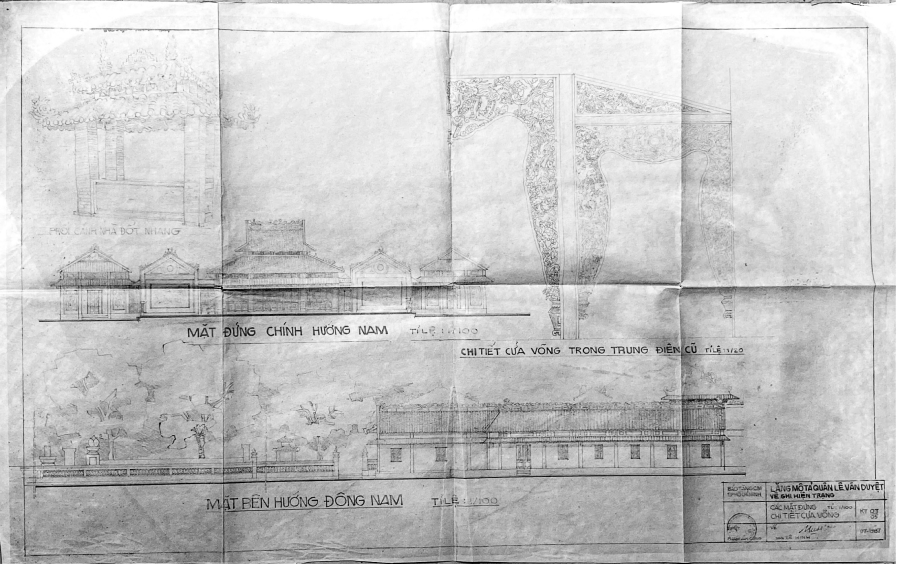 PHỐI CẢNH NHÀ ĐỐT NHANG
MẶT ĐỨNG CHÍNH HƯỚNG NAM TỈ LỆ : 1/100
CHI TIẾT CỬA VÕNG TRONG TRUNG ĐIỆN CŨ TỈ LỆ : 1/20
MẶT BÊN HƯỚNG ĐÔNG NAM TỈ LỆ : 1/100
LĂNG MỘ TẢ QUÂN LÊ VĂN DUYỆT
VẼ GHI HIỆN TRẠNG
CÁC MẶT ĐỨNG
CHI TIẾT CỬA VÕNG
KT 03